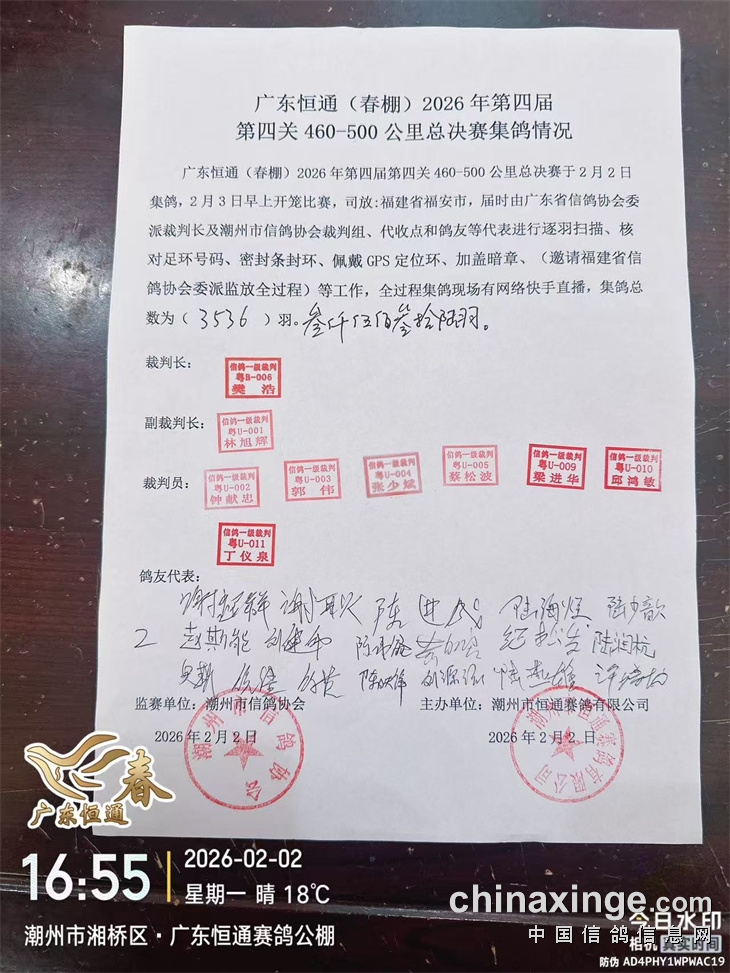 广东恒通（春棚）2026年第四届
第四关460-500公里总决赛集鸽情况
广东恒通（春棚）2026年第四届第四关460-500公里总决赛于2月2日
集鸽，2月3日早上开笼比赛，司放:福建省福安市，届时由广东省信鸽协会委
派裁判长及潮州市信鸽协会裁判组、代收点和鸽友等代表进行逐羽扫描、核
对足环号码、密封条封环、佩戴GPS定位环、加盖暗章、（邀请福建省信
鸽协会委派监放全过程）等工作，全过程集鸽现场有网络快手直播，集鸽总
数为（3536）羽。叁仟伍佰叁拾陆羽。
裁判长：
信鸽一级裁判
粤B-006
樊浩
副裁判长：
信鸽一级裁判
粤U-001
林旭辉
裁判员：
信鸽一级裁判
粤U-002
钟献忠
信鸽一级裁判
粤U-003
郭伟
信鸽一级裁判
粤U-004
张少斌
信鸽一级裁判
粤U-005
蔡松波
信鸽一级裁判
粤U-009
梁进华
信鸽一级裁判
粤U-010
邱鸿敏
信鸽一级裁判
粤U-011
丁仪泉
鸽友代表：
监赛单位：潮州市信鸽协会
主办单位：潮州市恒通赛鸽有限公司
2026年2月2日
2026年2月2日
潮州市信鸽协会
潮州市恒通赛鸽有限公司
春
广东恒通
16:55
2026-02-02
星期一 晴 18℃
潮州市湘桥区·广东恒通赛鸽公棚
chinaxinge.com
中国信鸽信息网
今日水印
相机 真实时间
防伪 AD4PHY1WPWAC19